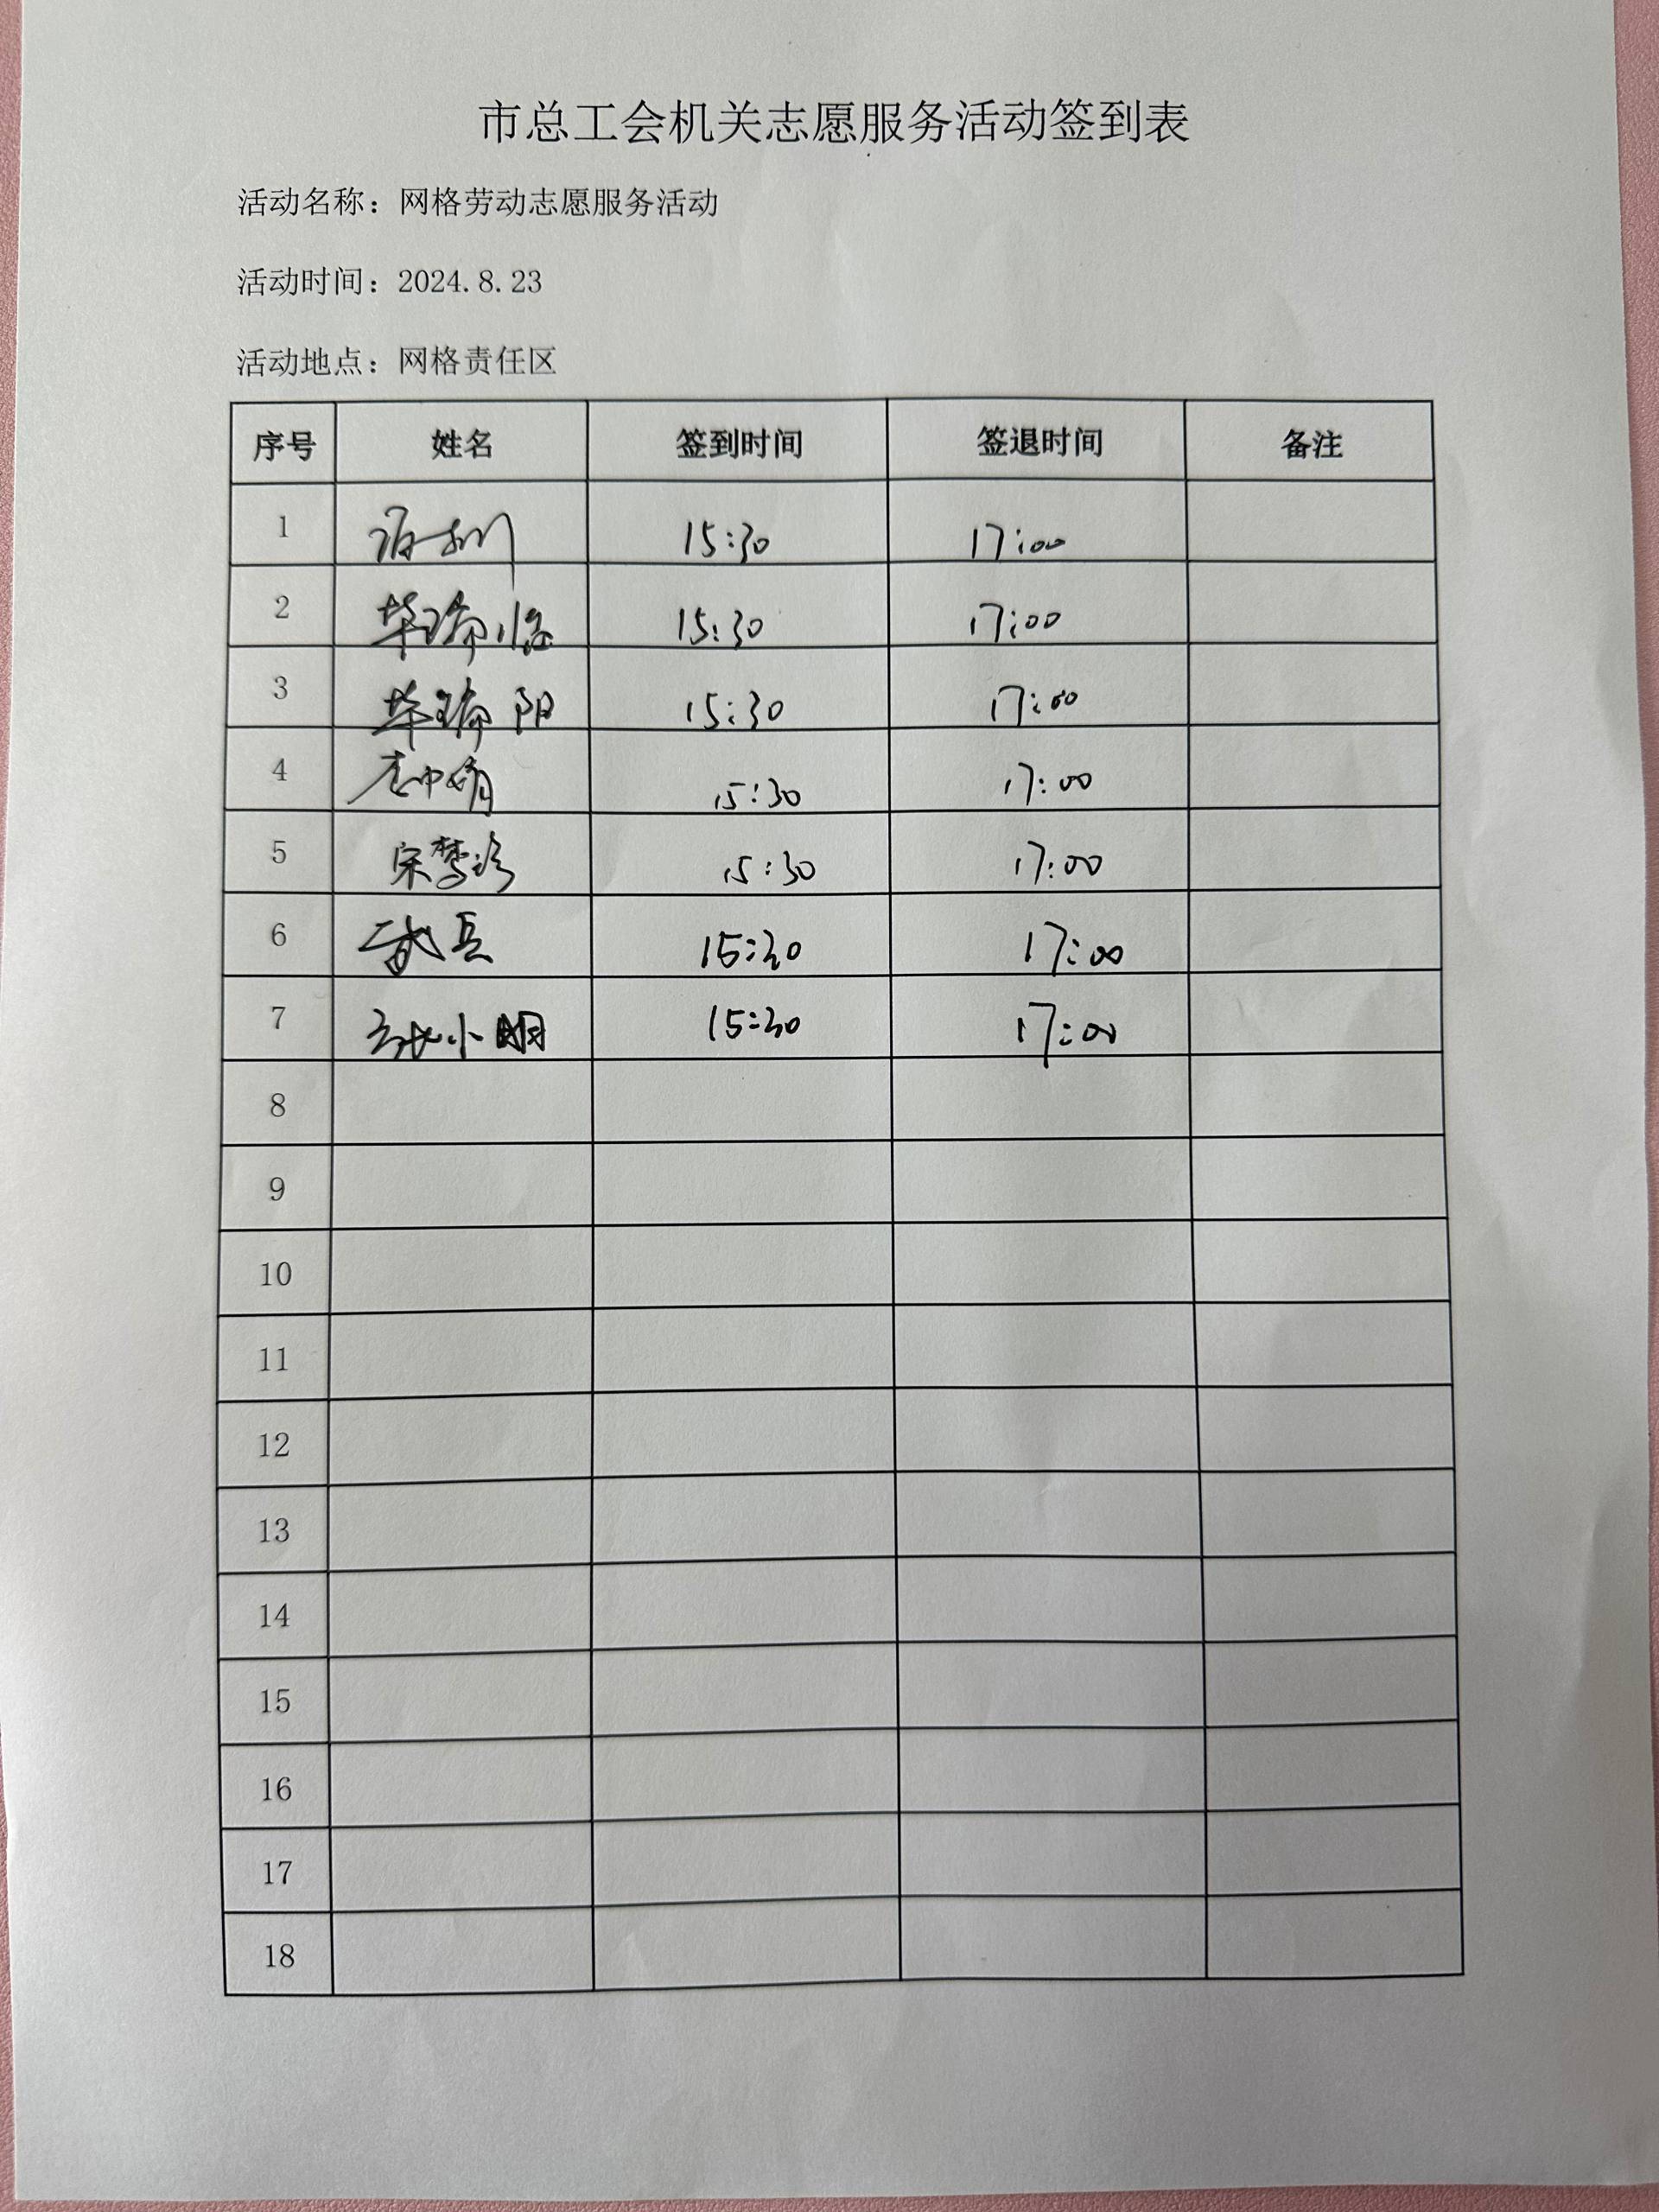 市总工会机关志愿服务活动签到表
活动名称：网格劳动志愿服务活动
活动时间：2024.8.23
活动地点：网格责任区
序号 姓名 签到时间 签退时间 备注
1 15:30 17:00
2 15:30 17:00
3 15:30 17:00
4 15:30 17:00
5 宋梦珍 15:30 17:00
6 武兵 15:30 17:00
7 张小明 15:30 17:00
8
9
10
11
12
13
14
15
16
17
18